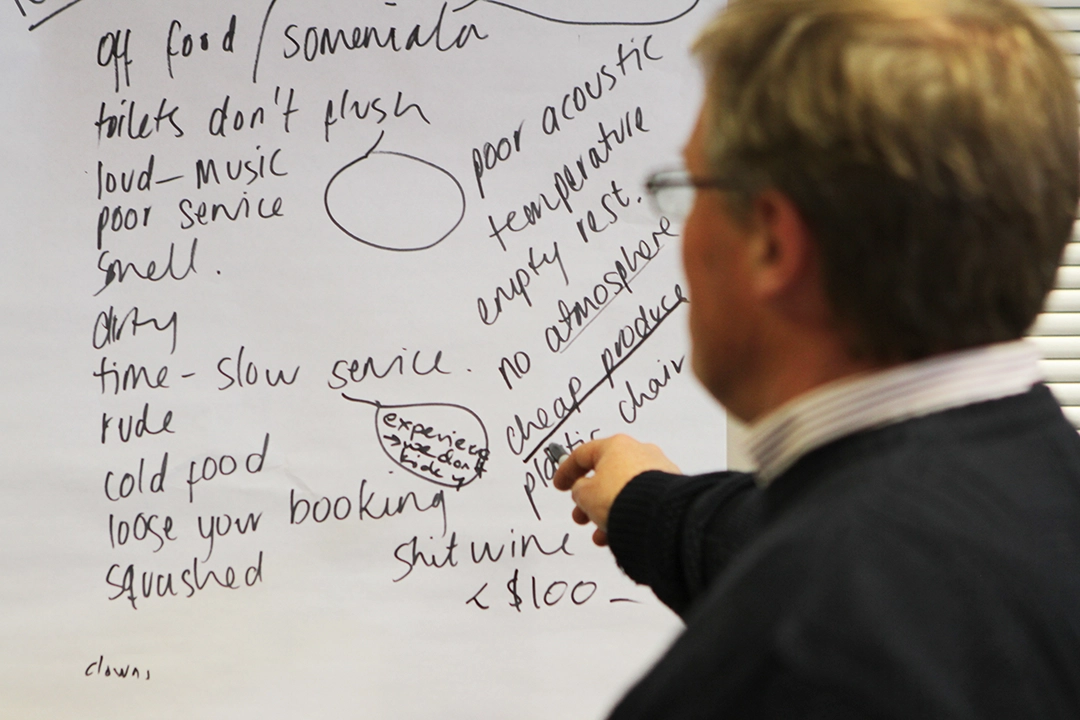 off food / someniala
toilets don't flush
loud – music
poor service
smell.
dirty
time - slow service.
rude
cold food
loose your booking
squashed
clowns
experience
→ we don't
poor acoustic
temperature
empty rest.
no atmosphere
cheap produce
plastic chair
shit wine
< $100 –